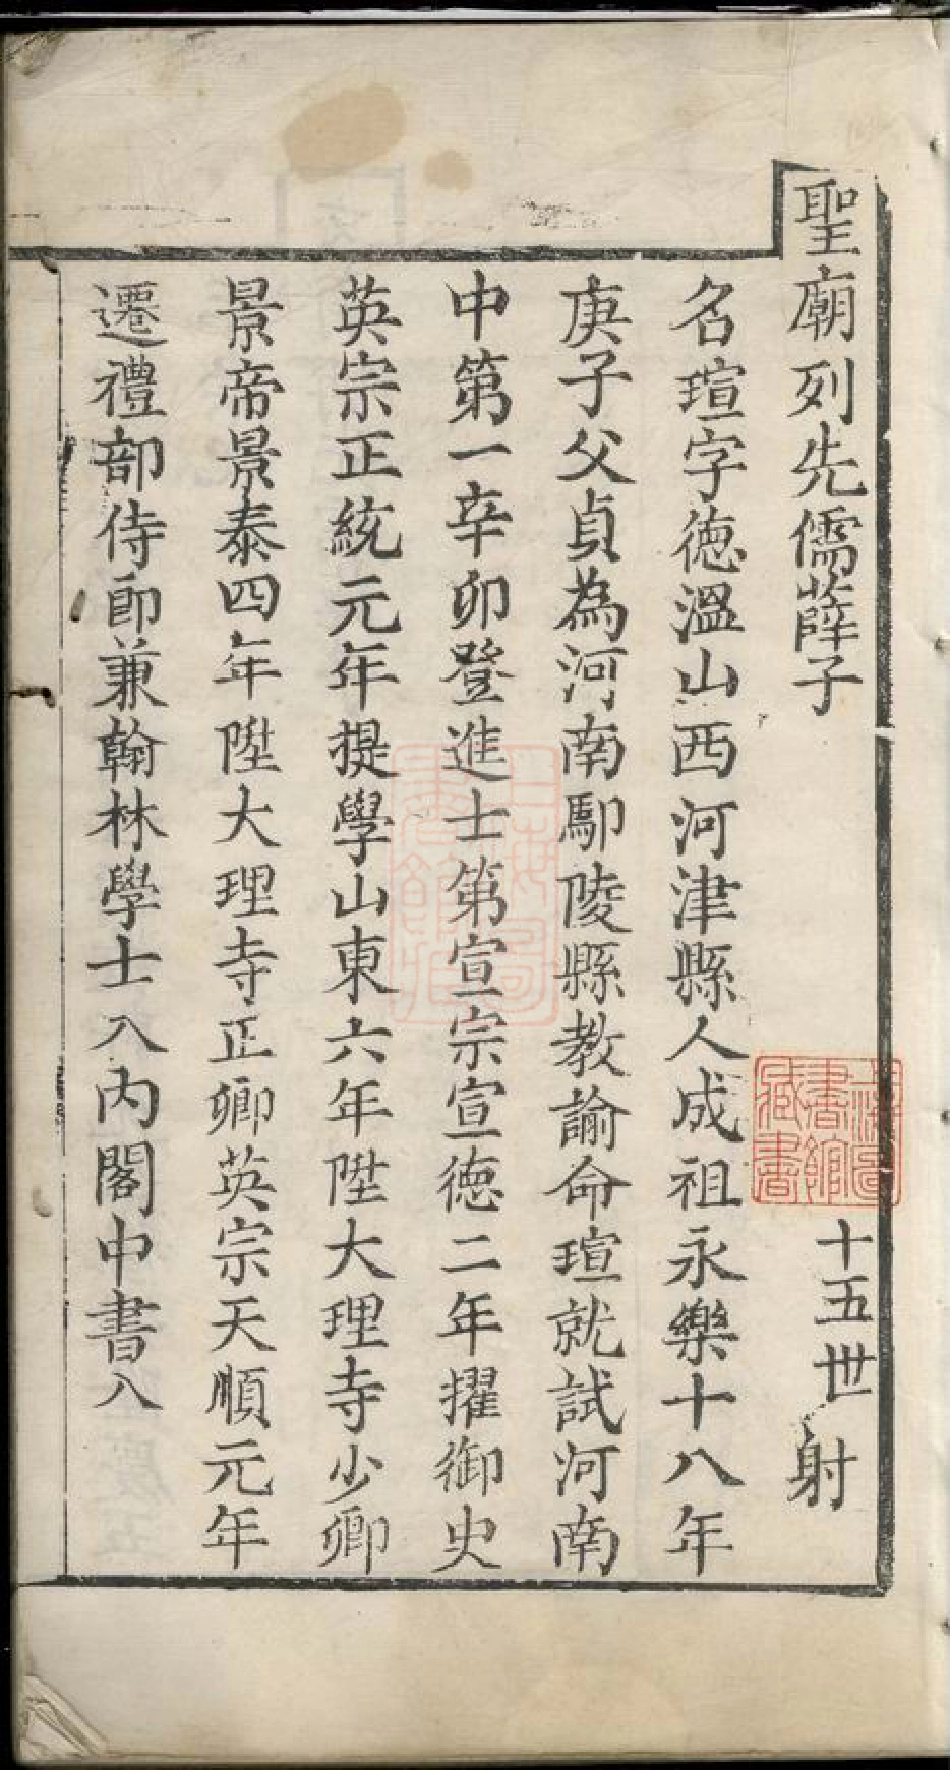 聖廟列先儒薛子 十五世 射
名瑄字德溫山西河津縣人成祖永樂十八年
庚子父貞為河南鄢陵縣教諭命瑄就試河南
中第一辛卯登進士第宣宗宣德二年擢御史
英宗正統元年提學山東六年陞大理寺少卿
景帝景泰四年陞大理寺正卿英宗天順元年
遷禮部侍郎兼翰林學士入內閣中書八
上海圖書館藏
上海圖書館藏書